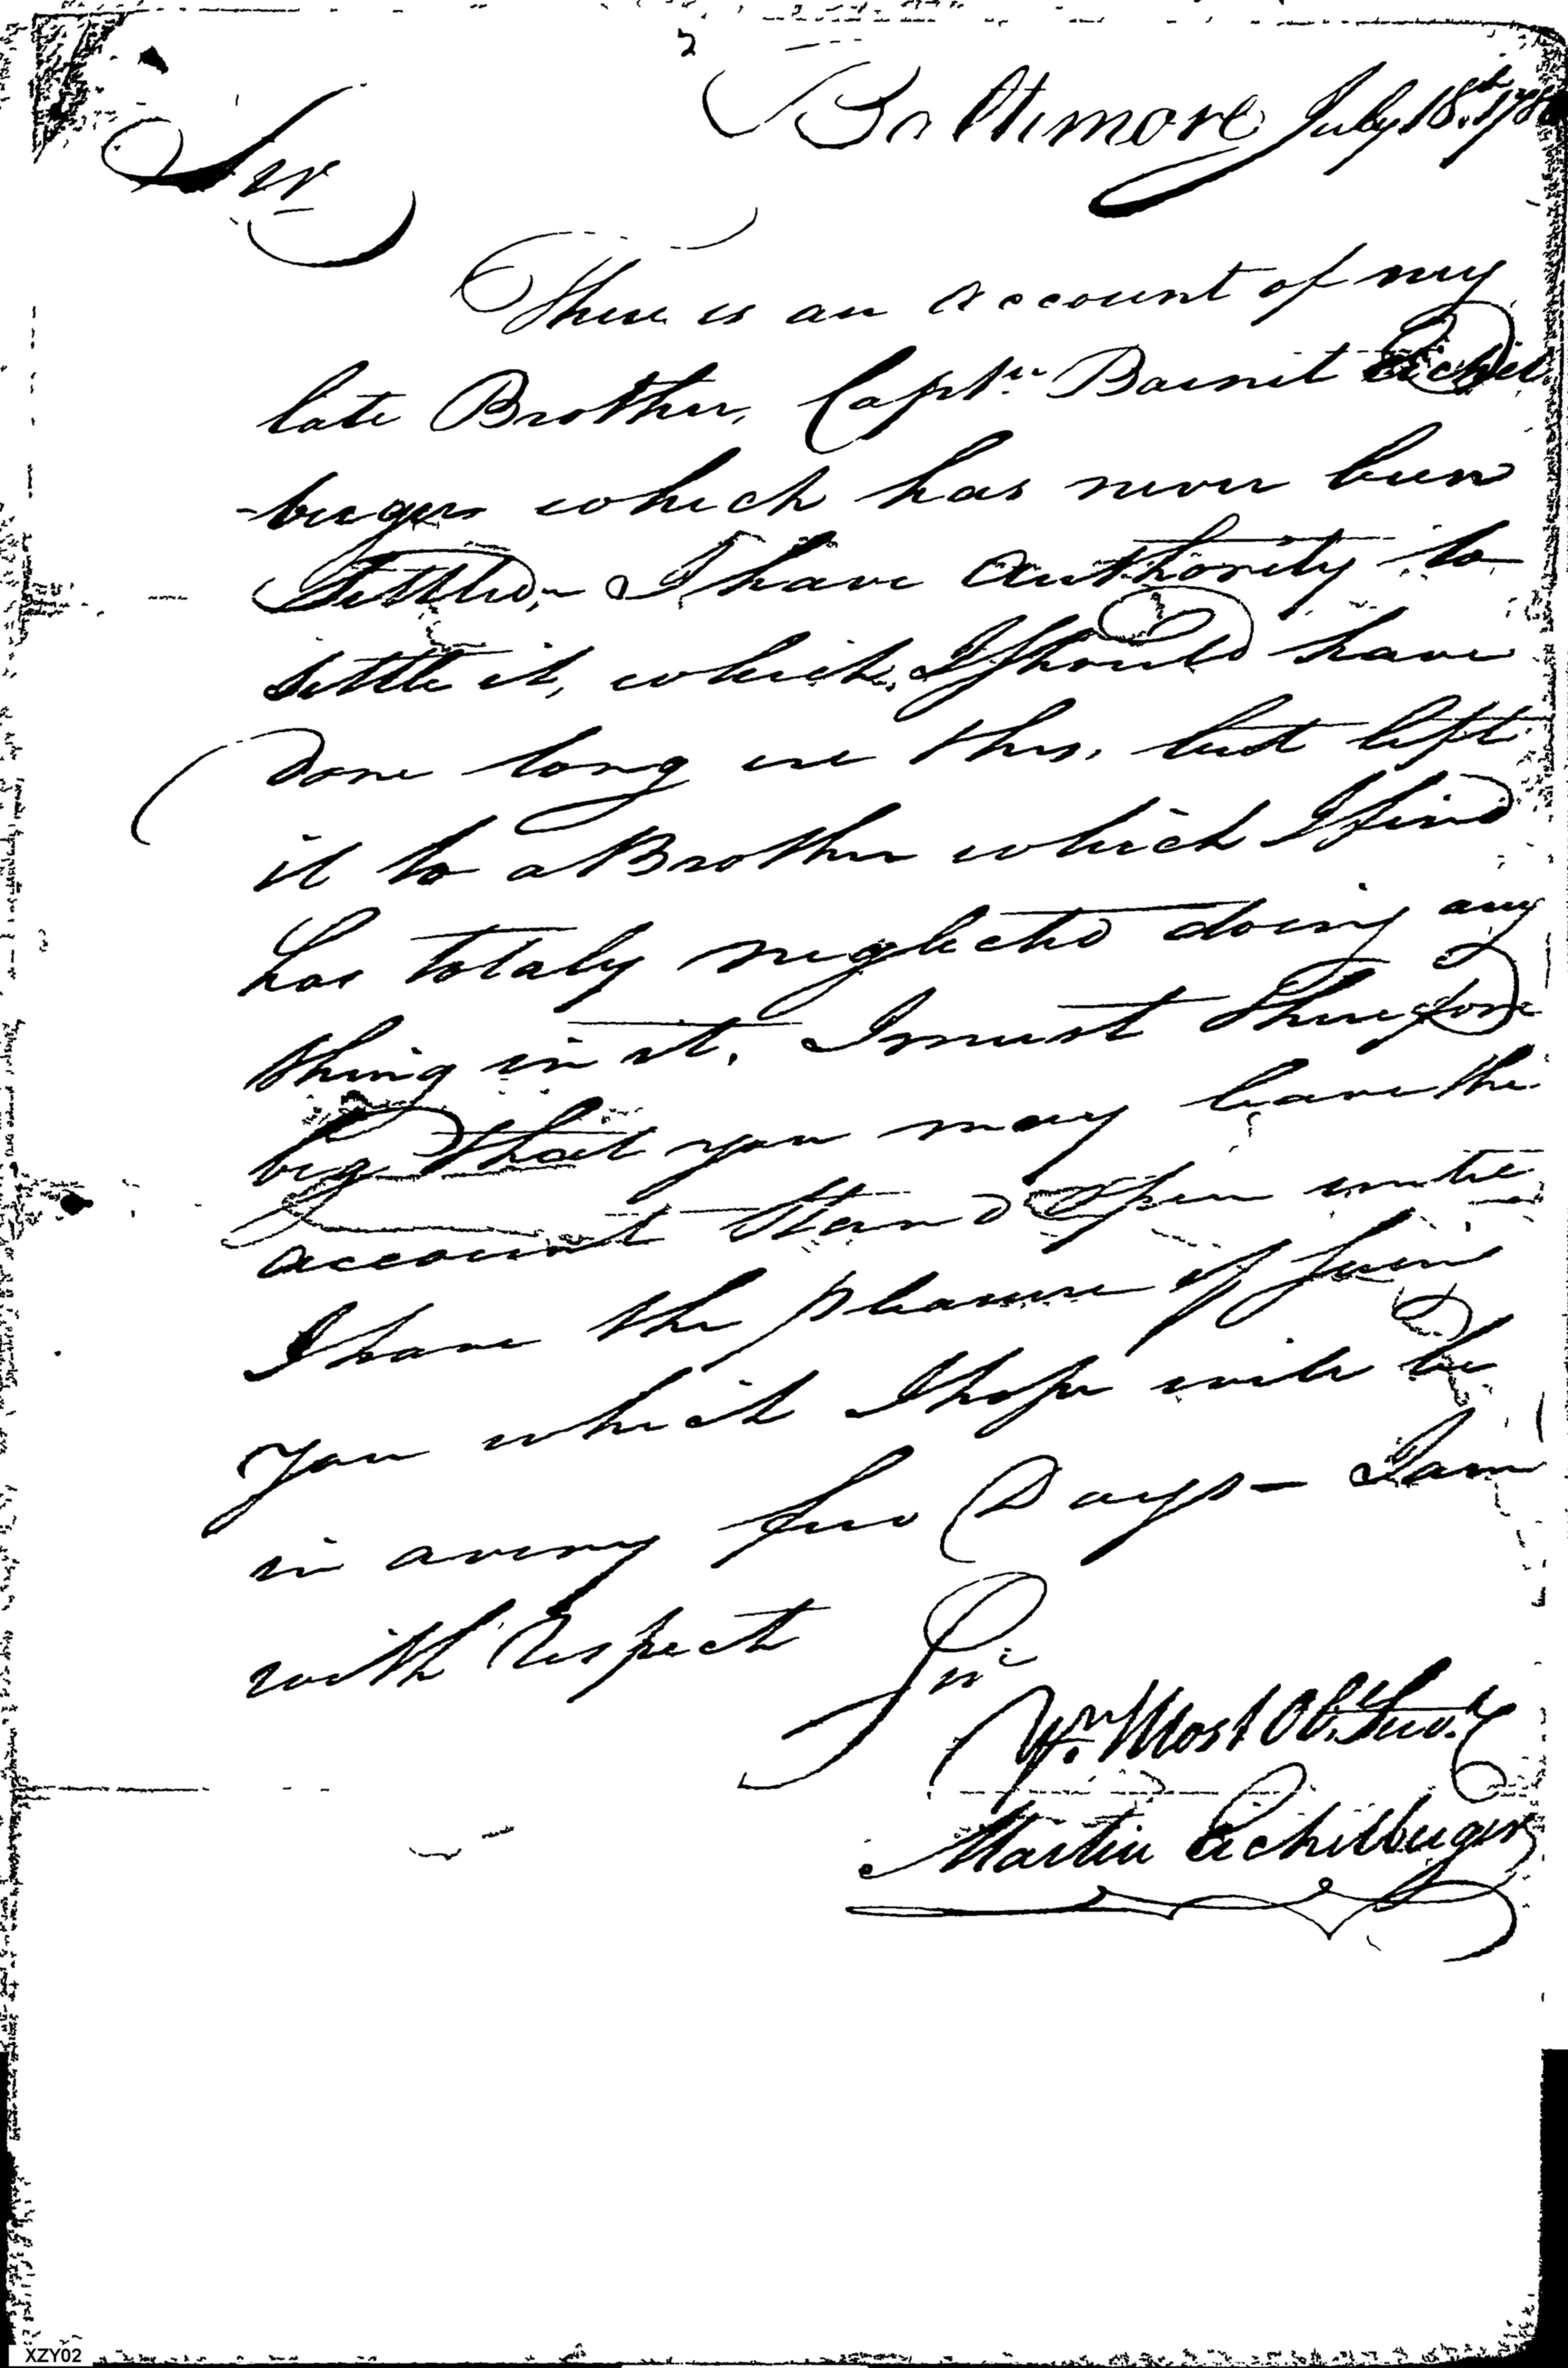 2
Baltimore July 18th 178
Sir
There is an account of my
late Brother, Captn. Barnit Eichel
-berger which has never been
Settled,- I have authority to
settle it, which, I should have
done long ere this, but left
it to a Brother which I find
has totaly neglected doing any
thing in it. I must therefore
beg that you may leave the
account stand open untill
I have the pleasure of seeing
you which I hope will be
in a very few Days - I am
with respect Sir
Yr. Most Ob. Servt.
Martin Eichelberger
XZY02